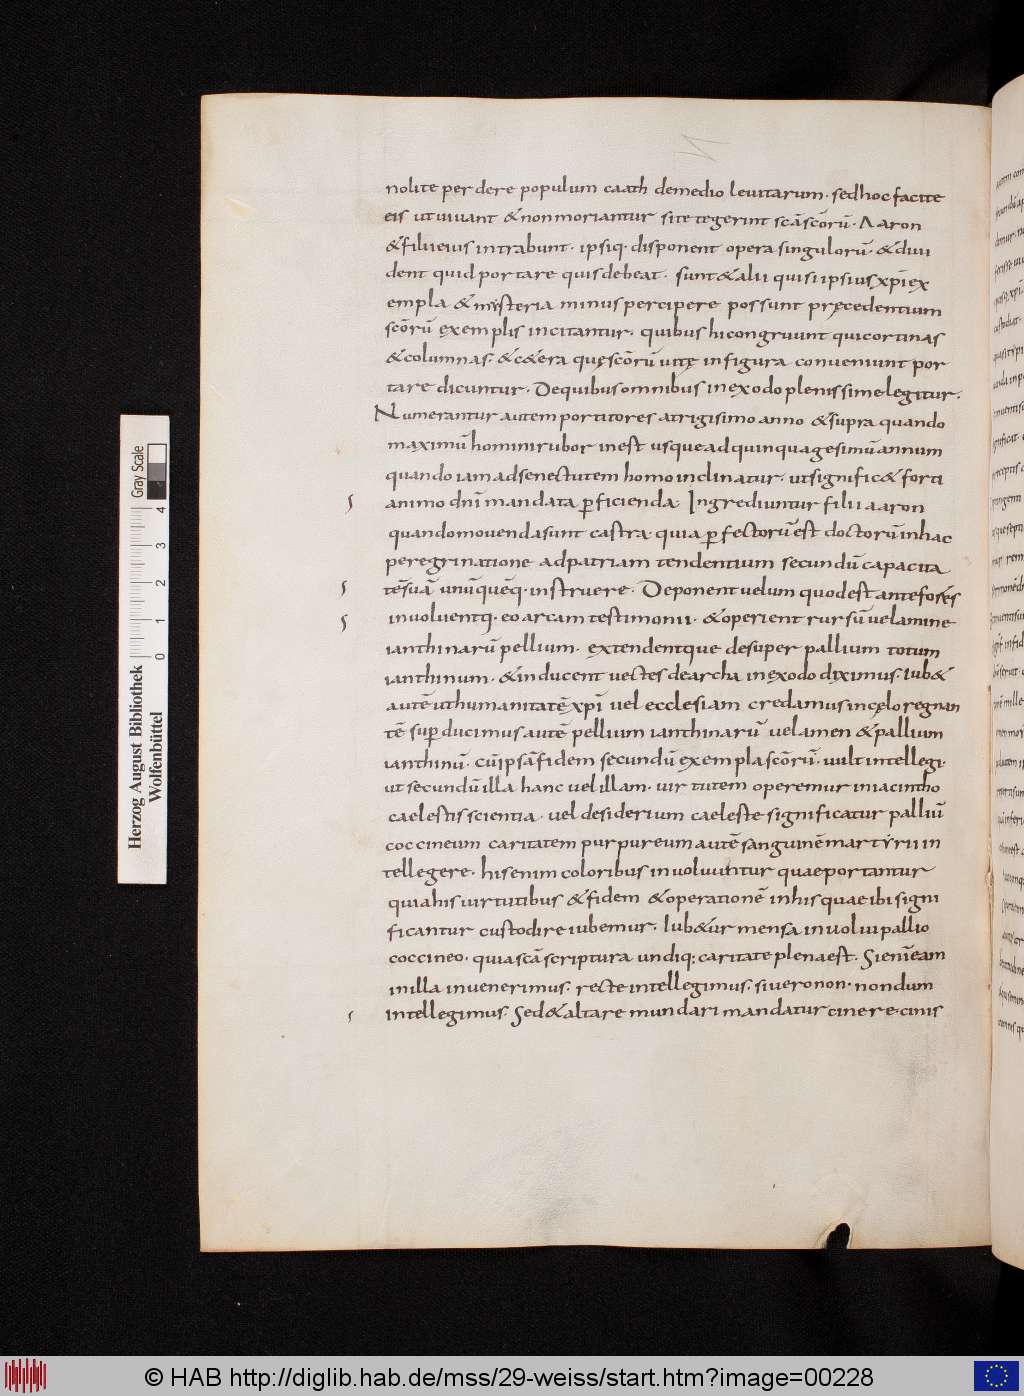 nolite perdere populum caath demedio leuitarum · sedhoc facite
eis utuiuant & nonmoriantur site tegerint scāscōrū · Aaron
& filii eius intrabunt · ipsiq · disponent opera singulorū · & diui
dent quid portare quis debeat · sunt & alii quisi ipsius xp̄i ex
empla & mysteria minus percipere possunt pręcedentium
scōrū exemplis incitantur · quibus hi congruunt qui cortinas
& columnas · & c&era quęscōrū uitę in figura conueniunt por
tare dicuntur · De quibus omnibus in exodo plenissime legitur ·
Numerantur autem portitores atrigisimo anno & supra quando
maximū homini rubor inest usque ad quinquagesimū annum
quando iam ad senectutem homo inclinatur · ut signific& forti
animo dn̄i mandata p̄ficienda · Ingrediuntur filii aaron
quando mouenda sunt castra quia p̄fectorū est doctorū in hac
peregrinatione ad patriam tendentium secundū capacita
tē suā unūquēq · instruere · Deponent uelum quod est ante fores
inuoluentq · eo arcam testimonii · & operient rursū uelamine
ianthinarū pellium · extendentque desuper pallium totum
ianthinum · & inducent uectes de archa in exodo diximus · Iub&
autē ut humanitatē xp̄i uel ecclesiam credamus in cęlo regnan
tē sup̄ducimus autē pellium ianthinarū uelamen & pallium
ianthinū · cū ipsā fidem secundū exempla scōrū · uult intellegi ·
ut secundū illa hanc uel illam · uirtutem operemur in iacintho
caelestis scientia · uel desiderium caeleste significatur palliū
coccineum caritatem purpureum autē sanguinē martyrii in
tellegere · his enim coloribus inuoluuntur quae portantur
quia his uirtutibus & fidem & operationē in his quae ibi signi
ficantur custodire iubemur · Iub&ur mensa inuolui pallio
coccineo · quia scā scriptura undiq; caritate plena est · Si enī eam
in illa inuenerimus · recte intellegimus · si uero non · nondum
intellegimus · Sed & altare mundari mandatur cinere · cinis
Herzog August Bibliothek
Wolfenbüttel
0 1 2 3 4
Gray Scale
© HAB http://diglib.hab.de/mss/29-weiss/start.htm?image=00228